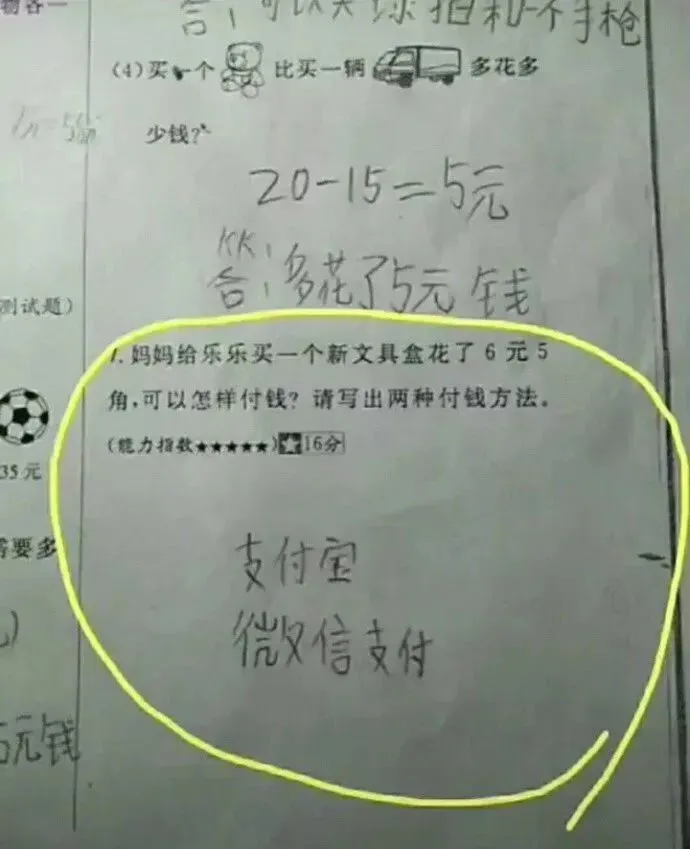 物各一
答:可以买球拍和一个手枪
(4)买一个 比买一辆 多花多
少钱?
20-15=5元
KK
答:多花了5元钱
测试题)
7.妈妈给乐乐买一个新文具盒花了6元5
角,可以怎样付钱?请写出两种付钱方法。
(能力指数★★★★★)★16分
35元
需要多
支付宝
微信支付
5元钱